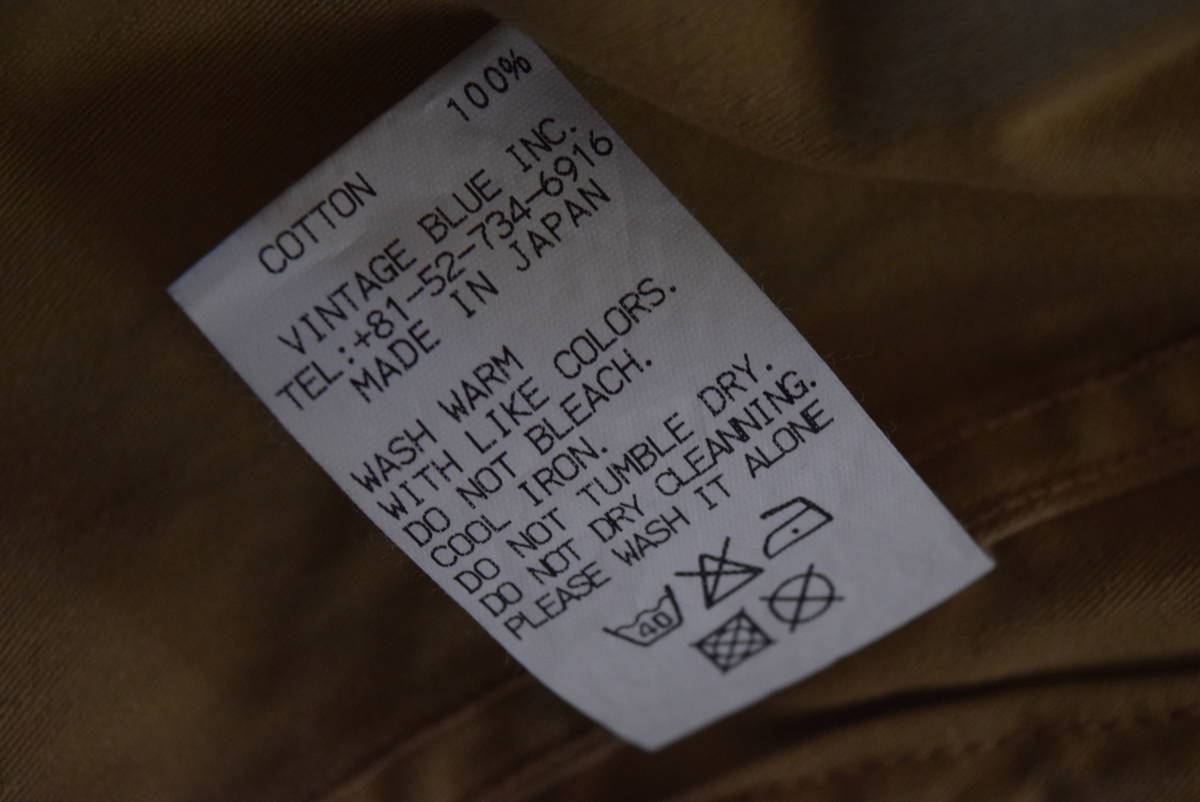 COTTON 100%
VINTAGE BLUE INC.
TEL:+81-52-734-6916
MADE IN JAPAN
WASH WARM
WITH LIKE COLORS.
DO NOT BLEACH.
COOL IRON.
DO NOT TUMBLE DRY.
DO NOT DRY CLEANNING.
PLEASE WASH IT ALONE
40